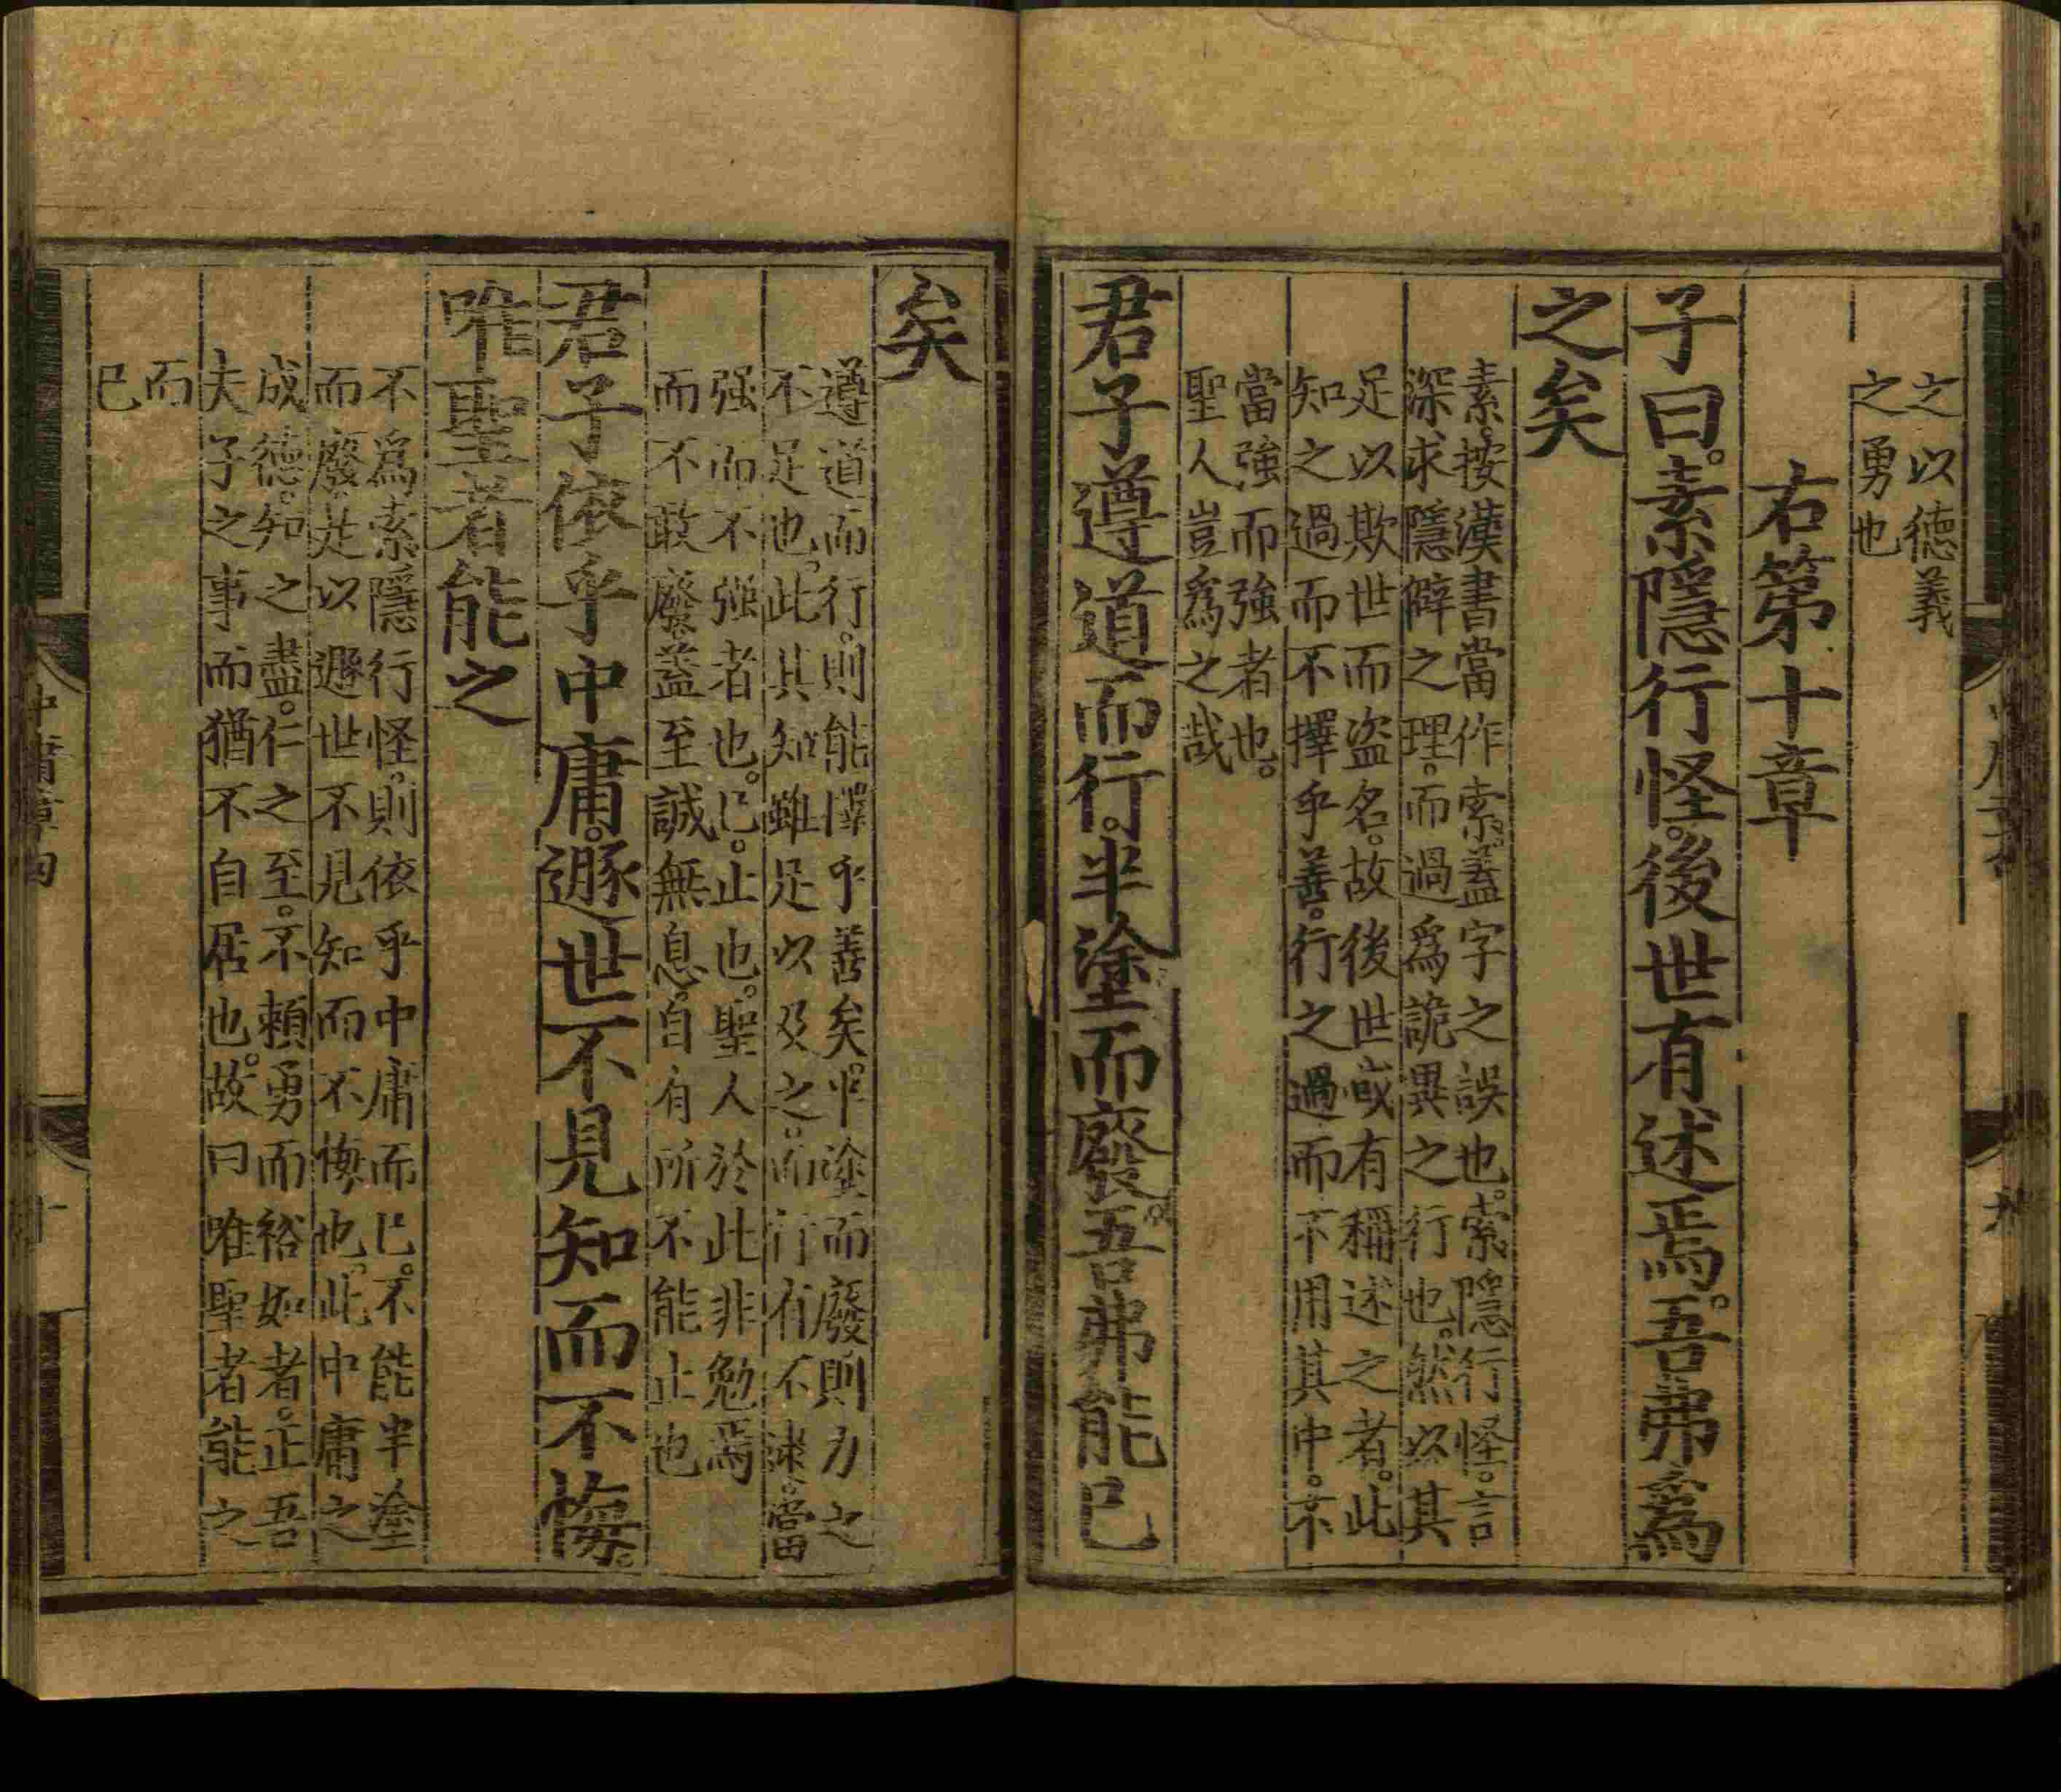 之以德義
之勇也
右第十章
子曰。素隱行怪。後世有述焉。吾弗爲
之矣
素。按漢書當作索。蓋字之誤也。索隱行怪。言
深求隱僻之理。而過爲詭異之行也。然以其
足以欺世而盜名。故後世或有稱述之者。此
知之過而不擇乎善。行之過而不用其中。不
當強而強者也。
聖人豈爲之哉
君子遵道而行。半塗而廢。吾弗能已
矣
遵道而行。則能擇乎善矣。半塗而廢則力之
不足也。此其知雖足以及之。而行有不逮。當
强而不强者也。已。止也。聖人於此非勉焉
而不敢廢。蓋至誠無息。自有所不能止也
君子依乎中庸。遯世不見知而不悔。
唯聖者能之
不爲索隱行怪。則依乎中庸而已。不能半塗
而廢。是以遯世不見知而不悔也。此中庸之
成德。知之盡。仁之至。不賴勇而裕如者。正吾
夫子之事而猶不自居也。故曰唯聖者能之
而
已
中庸章句
十
九